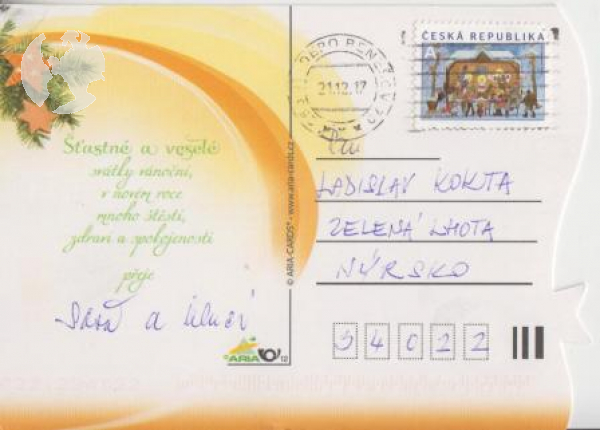 ČESKÁ REPUBLIKA
A
DEPO BENEŠOV
21.12.17
Šťastné a veselé
svátky vánoční,
v novém roce
mnoho štěstí,
zdraví a spokojenosti
přeje
a
© ARIA-CARDS® • www.aria-cards.cz
LADISLAV KOKTA
ZELENÁ LHOTA
NÝRSKO
ARIA
12
34022